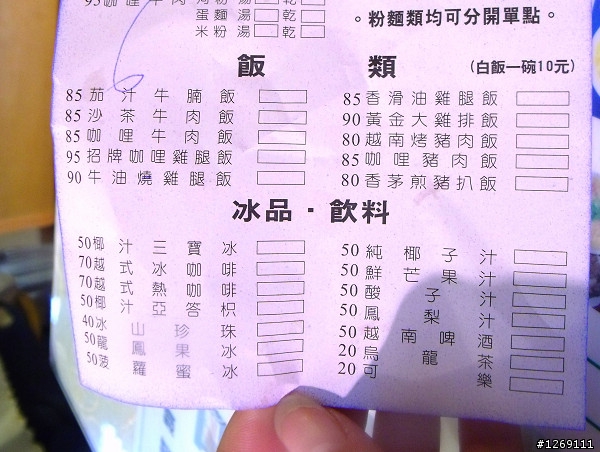 95咖哩牛肉河粉湯□乾□
蛋麵湯□乾□
米粉湯□乾□
。粉麵類均可分開單點。
飯 類 (白飯一碗10元)
85茄汁牛腩飯
85沙茶牛肉飯
85咖哩牛肉飯
95招牌咖哩雞腿飯
90牛油燒雞腿飯
85香滑油雞腿飯
90黃金大雞排飯
80越南烤豬肉飯
85咖哩豬肉飯
80香茅煎豬扒飯
冰品·飲料
50椰汁三寶冰
70越式冰咖啡
70越式熱咖啡
50椰汁亞答枳
40冰山珍珠
50龍鳳果冰
50菠蘿蜜冰
50純椰子汁
50鮮芒果汁
50酸子汁
50鳳梨汁
50越南啤酒
20烏龍茶
20可樂
#1269111